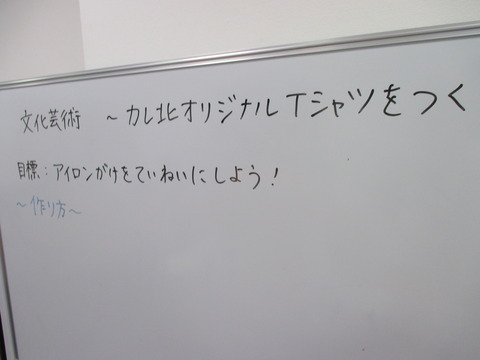 文化芸術 ~カレ北オリジナルTシャツをつく
目標:アイロンがけをていねいにしよう!
~作り方~